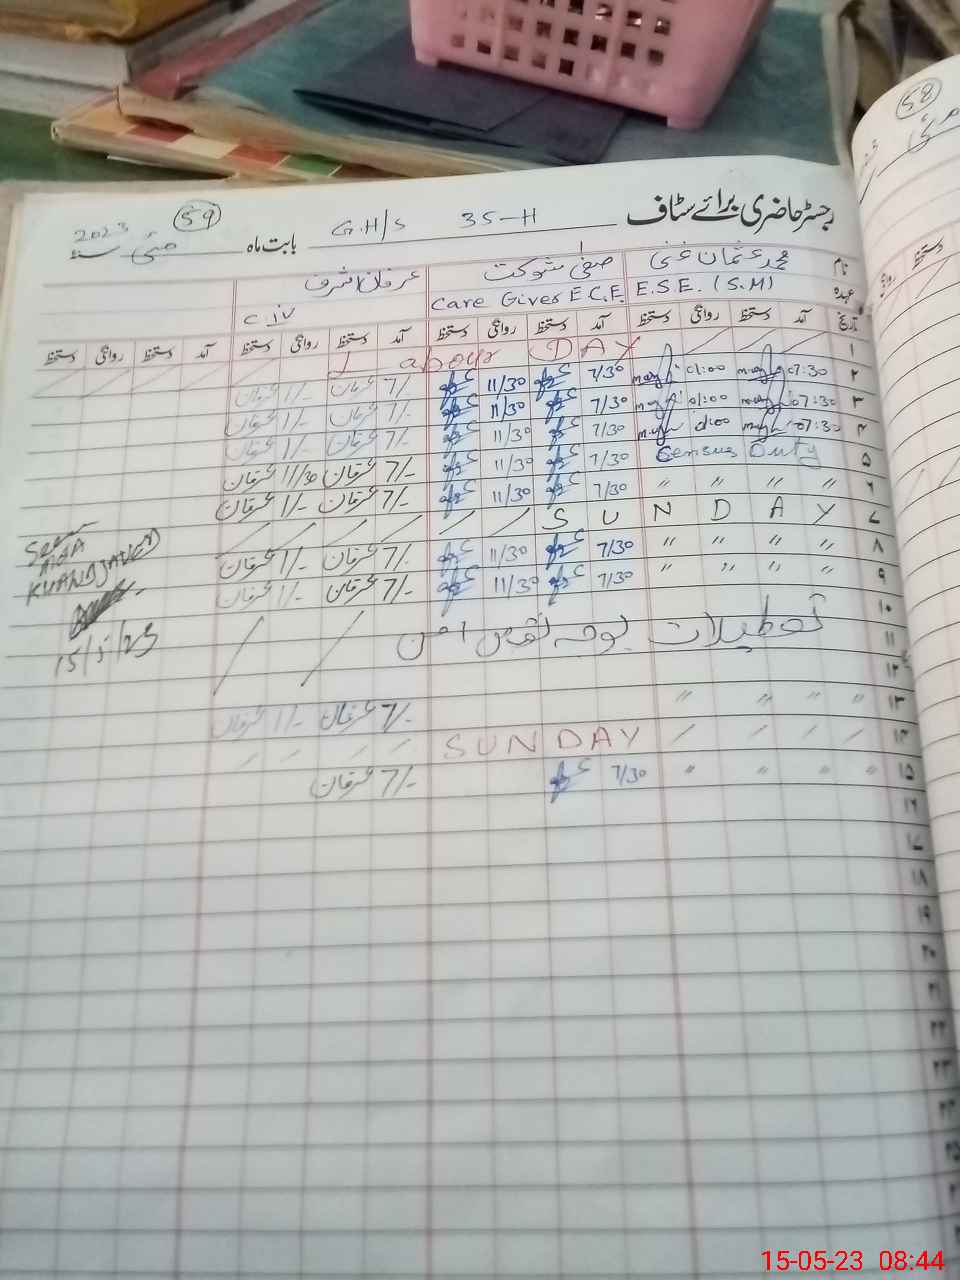 58
59
رجسٹر حاضری برائے سٹاف 35-H G.H/S بابت ماہ مئی سنہ 2023
نام محمد عثمان غنی صفی شوکت عرفان اشرف
عہدہ E.S.E. (S.M) Care Giver E.C.E. C.iV
تاریخ آمد دستخط روانگی دستخط آمد دستخط روانگی دستخط آمد دستخط روانگی دستخط آمد دستخط روانگی دستخط
۱ Labour DAY
۲ 07:30 01:00 7/30 11/30 7/- عرفان 1/- عرفان
۳ 07:30 01:00 7/30 11/30 7/- عرفان 1/- عرفان
۴ 07:30 01:00 7/30 11/30 7/- عرفان 1/- عرفان
۵ Census Duty 7/30 11/30 7/- عرفان 11/30 عرفان
۶ " " " " 7/30 11/30 7/- عرفان 1/- عرفان
۷ SUNDAY
۸ " " " " 7/30 11/30 7/- عرفان 1/- عرفان
۹ " " " " 7/30 11/30 7/- عرفان 1/- عرفان
۱۰
۱۱ تعطیلات بوجہ نقص امن
۱۲
۱۳ " " " " 7/- عرفان 1/- عرفان
۱۴ SUNDAY
۱۵ " " " " 7/30 7/- عرفان
۱۶
۱۷
۱۸
۱۹
۲۰
۲۱
۲۲
۲۳
۲۴
۲۵
See
15/5/23
15-05-23 08:44